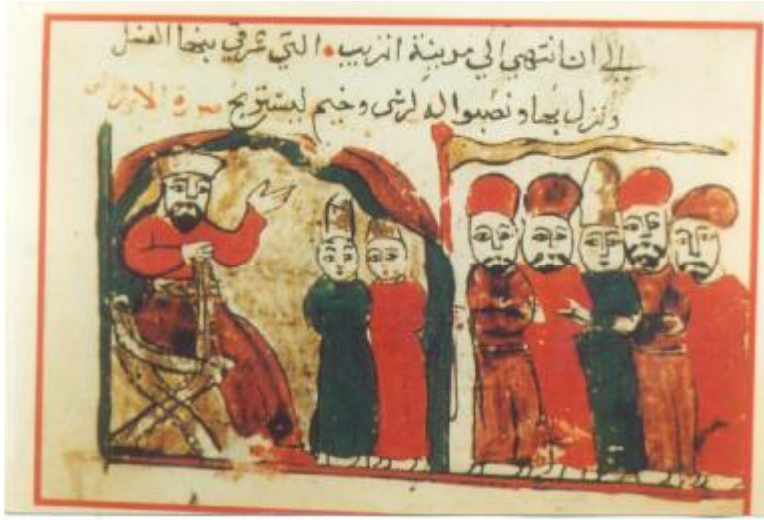 الي ان انتهي الي مدينة انريب التي شرقي بنها العسل
ونزل بها ونصبوا له لرشي وخيم ليستريح صورة